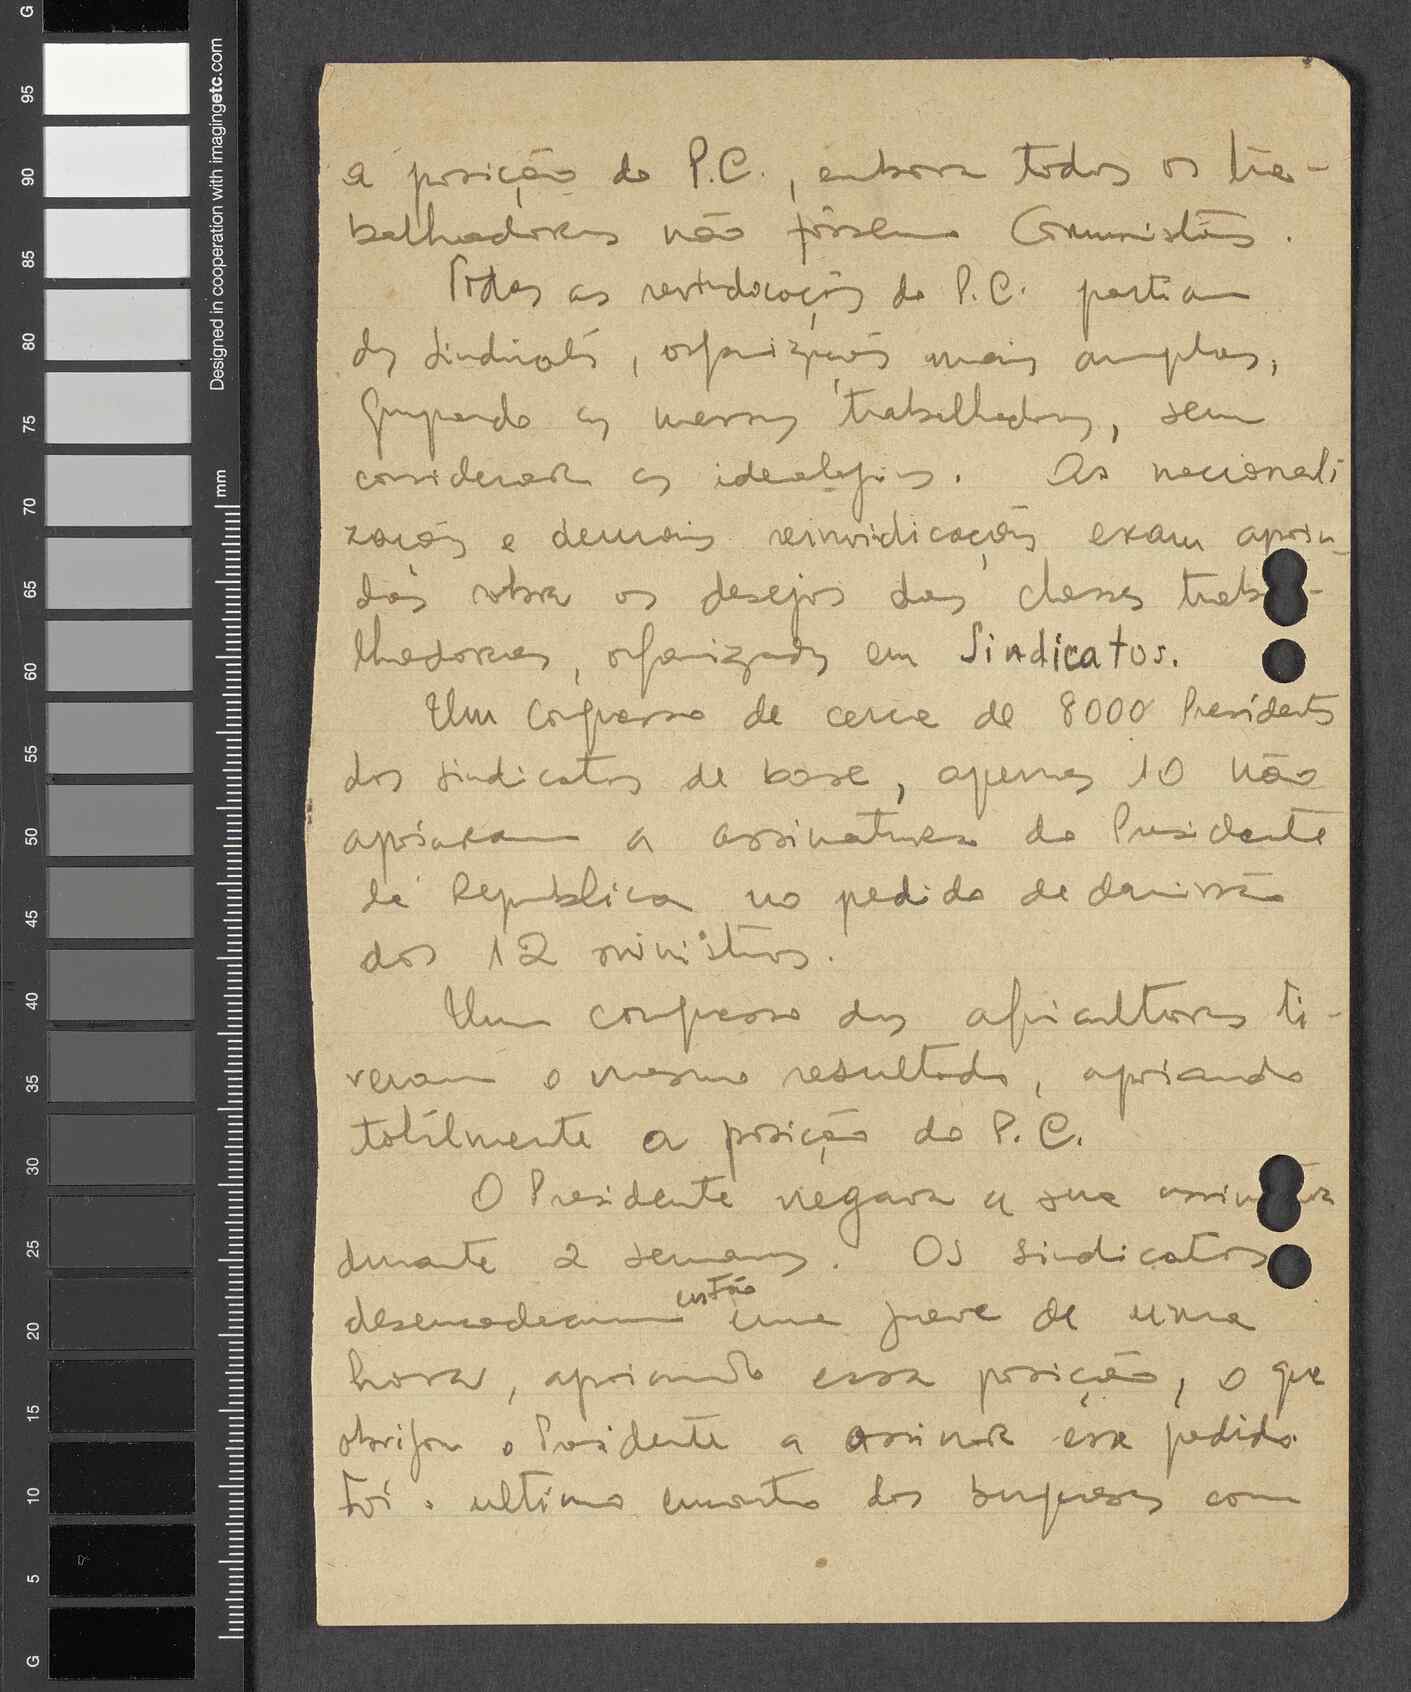 a posição do P.C., embora todos os tra-
balhadores não fôssem Comunistas.
Todas as revindicações do P.C. partiam
dos sindicatos, organizações mais amplas,
grupando as massas trabalhadoras, sem
considerar as idealogias. As nacionali
zações e demais reinvidicações eram apoia-
das sobre os desejos das classes traba-
lhadoras, organizadas em Sindicatos.
Um Congresso de cerca de 8000 Presidents
dos sindicatos de base, apenas 10 não
apoiaram a assinatura do Presidente
da Republica no pedido de demissão
dos 12 ministros.
Um congresso dos agricultores ti-
veram o mesmo resultado, apoiando
totálmente a posição do P.C.
O Presidente negara a sua assinatura
durante 2 semanas. Os sindicatos
desencadearam então uma greve de uma
hora, apoiando essa posição, o que
obrigou o Presidente a assinar êsse pedido.
Foi o ultimo encontro dos burgueses com
G
95
90
85
80
75
70
65
60
55
50
45
40
35
30
25
20
15
10
5
G
Designed in cooperation with imagingetc.com
mm